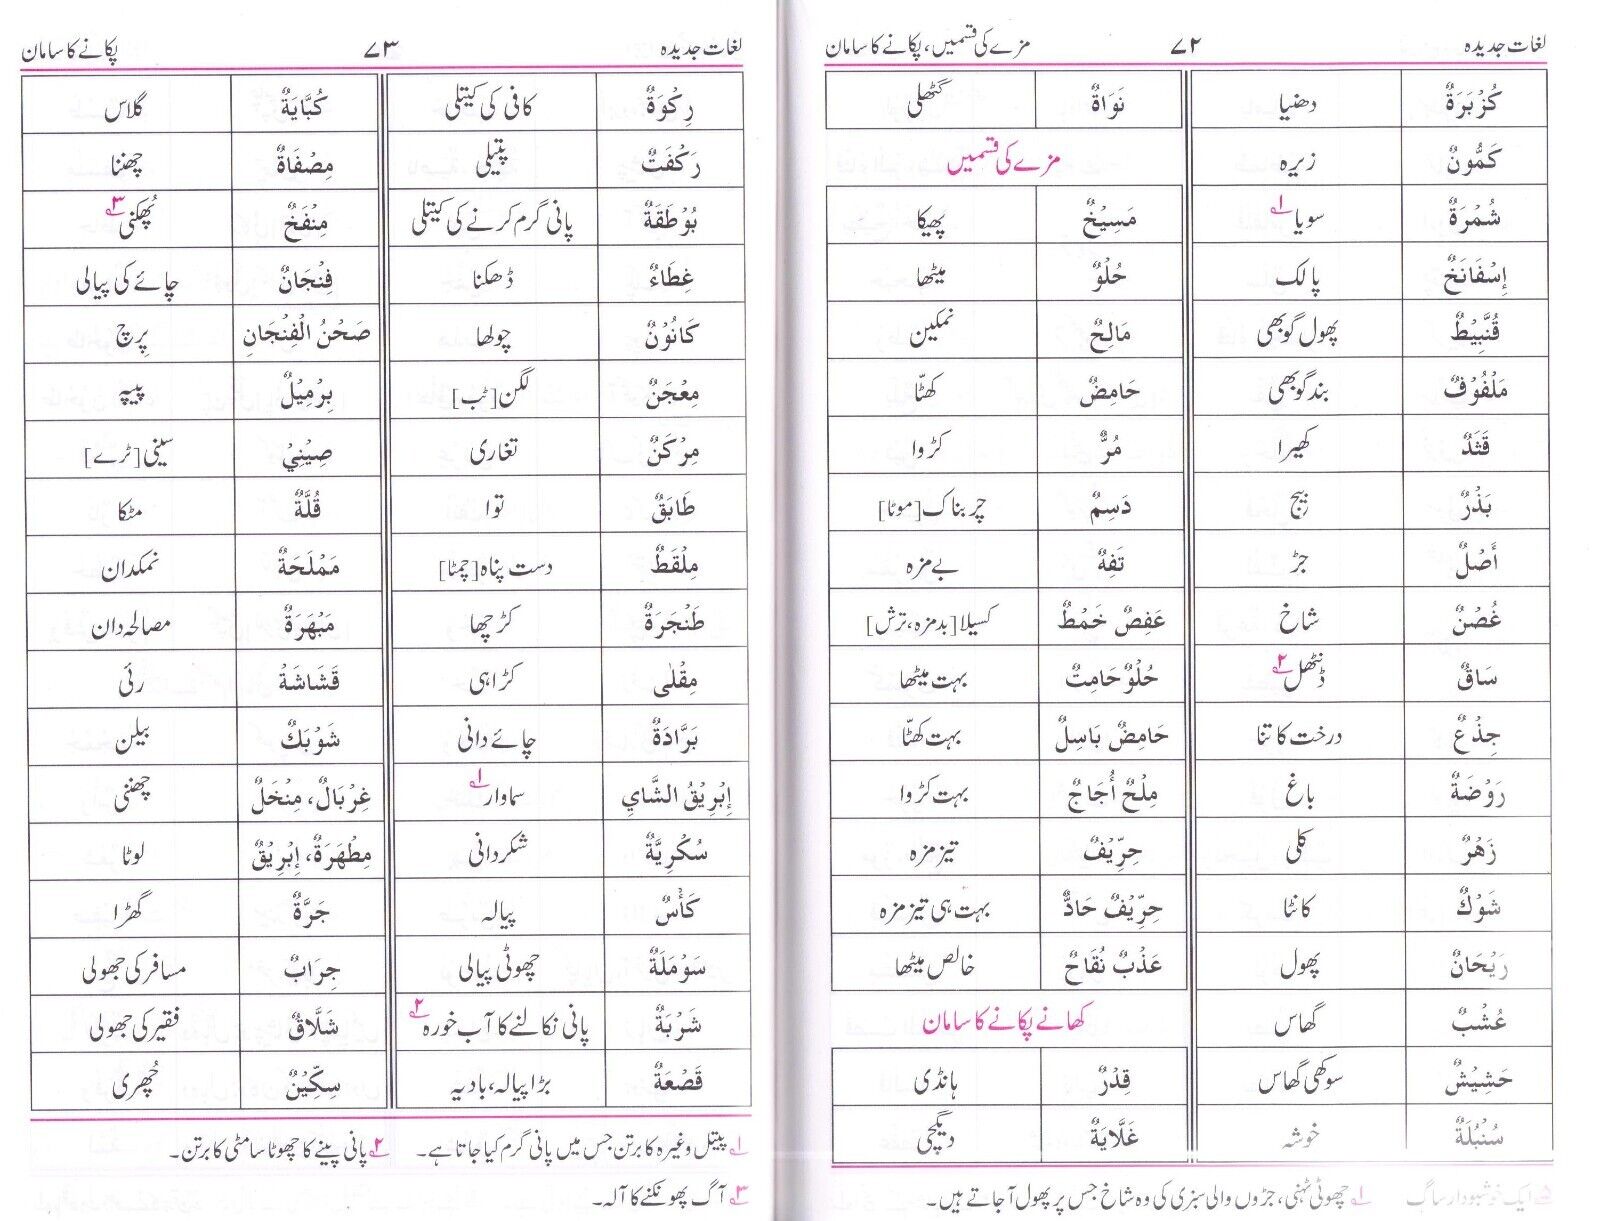 لغات جدیدہ ۷۲ مزے کی قسمیں، پکانے کا سامان
كُزْبَرَةٌ دھنیا
كَمُّونٌ زیرہ
شُمْرَةٌ سویا ۱
إِسْفَانَخٌ پالک
قُنَّبِيْطٌ پھول گوبھی
مَلْفُوْفٌ بند گوبھی
قَثَدٌ کھیرا
بَذْرٌ بیج
أَصْلٌ جڑ
غُصْنٌ شاخ
سَاقٌ ڈنٹھل ۲
جِذْعٌ درخت کا تنا
رَوْضَةٌ باغ
زَهْرٌ کلی
شَوْكٌ کانٹا
رَيْحَانٌ پھول
عُشْبٌ گھاس
حَشِيْشٌ سوکھی گھاس
سُنْبُلَةٌ خوشہ
نَوَاةٌ گٹھلی
مزے کی قسمیں
مَسِيْخٌ پھیکا
حُلْوٌ میٹھا
مَالِحٌ نمکین
حَامِضٌ کھٹّا
مُرٌّ کڑوا
دَسِمٌ چربناک [موٹا]
تَفِهٌ بے مزہ
عَفِصٌ خَمْطٌ کسیلا [بدمزہ، ترش]
حُلْوٌ حَامِتٌ بہت میٹھا
حَامِضٌ بَاسِلٌ بہت کھٹّا
مِلْحٌ أُجَاجٌ بہت کڑوا
حِرِّيْفٌ تیز مزہ
حِرِّيْفٌ حَادٌّ بہت ہی تیز مزہ
عَذْبٌ نُقَاحٌ خالص میٹھا
کھانے پکانے کا سامان
قِدْرٌ ہانڈی
غَلَّايَةٌ دیگچی
ایک خوشبودار ساگ ۱ چھوٹی ٹہنی، جڑوں والی سبزی کی وہ شاخ جس پر پھول آجاتے ہیں۔
لغات جدیدہ ۷۳ پکانے کا سامان
رِكْوَةٌ کافی کی کیتلی
رَكْفَتٌ پتیلی
بُوْطَقَةٌ پانی گرم کرنے کی کیتلی
غِطَاءٌ ڈھکنا
كَانُوْنٌ چولھا
مِعْجَنٌ لگن [ٹب]
مِرْكَنٌ تغاری
طَابَقٌ توا
مِلْقَطٌ دست پناہ [چمٹا]
طَنْجَرَةٌ کڑچھا
مِقْلٰى کڑاہی
بَرَّادَةٌ چائے دانی
إِبْرِيْقُ الشَّايِ سماوار ۱
سُكْرِيَّةٌ شکردانی
كَأْسٌ پیالہ
سَوْمَلَةٌ چھوٹی پیالی
شَرْبَةٌ پانی نکالنے کا آب خورہ ۲
قَصْعَةٌ بڑا پیالہ، بادیہ
كُبَّايَةٌ گلاس
مِصْفَاةٌ چھننا
مِنْفَخٌ پُھکنی ۳
فِنْجَانٌ چائے کی پیالی
صَحْنُ الْفِنْجَانِ پرچ
بِرْمِيْلٌ پیپہ
صِيْنِيْ سینی [ٹرے]
قُلَّةٌ مٹکا
مَمْلَحَةٌ نمکدان
مَبْهَرَةٌ مصالحہ دان
قَشَاشَةْ رئی
شَوْبَكٌ بیلن
غِرْبَالٌ، مِنْخَلٌ چھننی
مِطْهَرَةٌ، إِبْرِيْقٌ لوٹا
جَرَّةٌ گھڑا
جِرَابٌ مسافر کی جھولی
شَلَّاقٌ فقیر کی جھولی
سِكِّيْنٌ چُھری
۱ پیتل وغیرہ کا برتن جس میں پانی گرم کیا جاتا ہے۔ ۲ پانی پینے کا چھوٹا سا مٹی کا برتن۔
۳ آگ پھونکنے کا آلہ۔